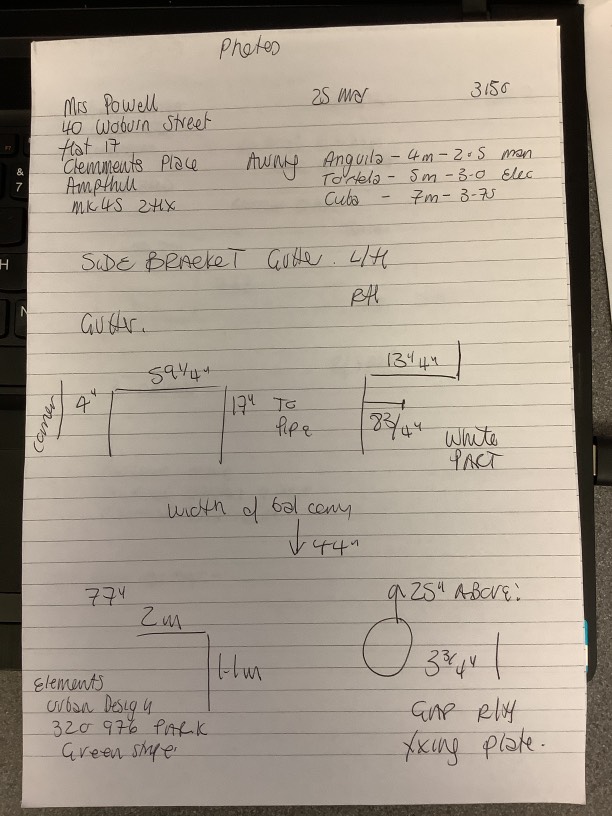 Photos
Mrs Powell 25 Mar 3150
40 Woburn Street
flat 17
Clemments Place Awning Anguila - 4m - 2.5 man
Ampthill Tortola - 5m - 3.0 Elec
MK45 2HX Cuba - 7m - 3.75
SIDE BRACKET Gutter. L/H
R/H
Gutter.
59 1/4"
13" 4"
corner 4" 17" To
Pipe
8 3/4"
White
PART
width of balcony
44"
77"
2m
1.1m
9.25" ABOVE:
3 3/4"
Elements
Urban Design
320 976 PARK
Green stripe
GAP R/H
fixing plate.